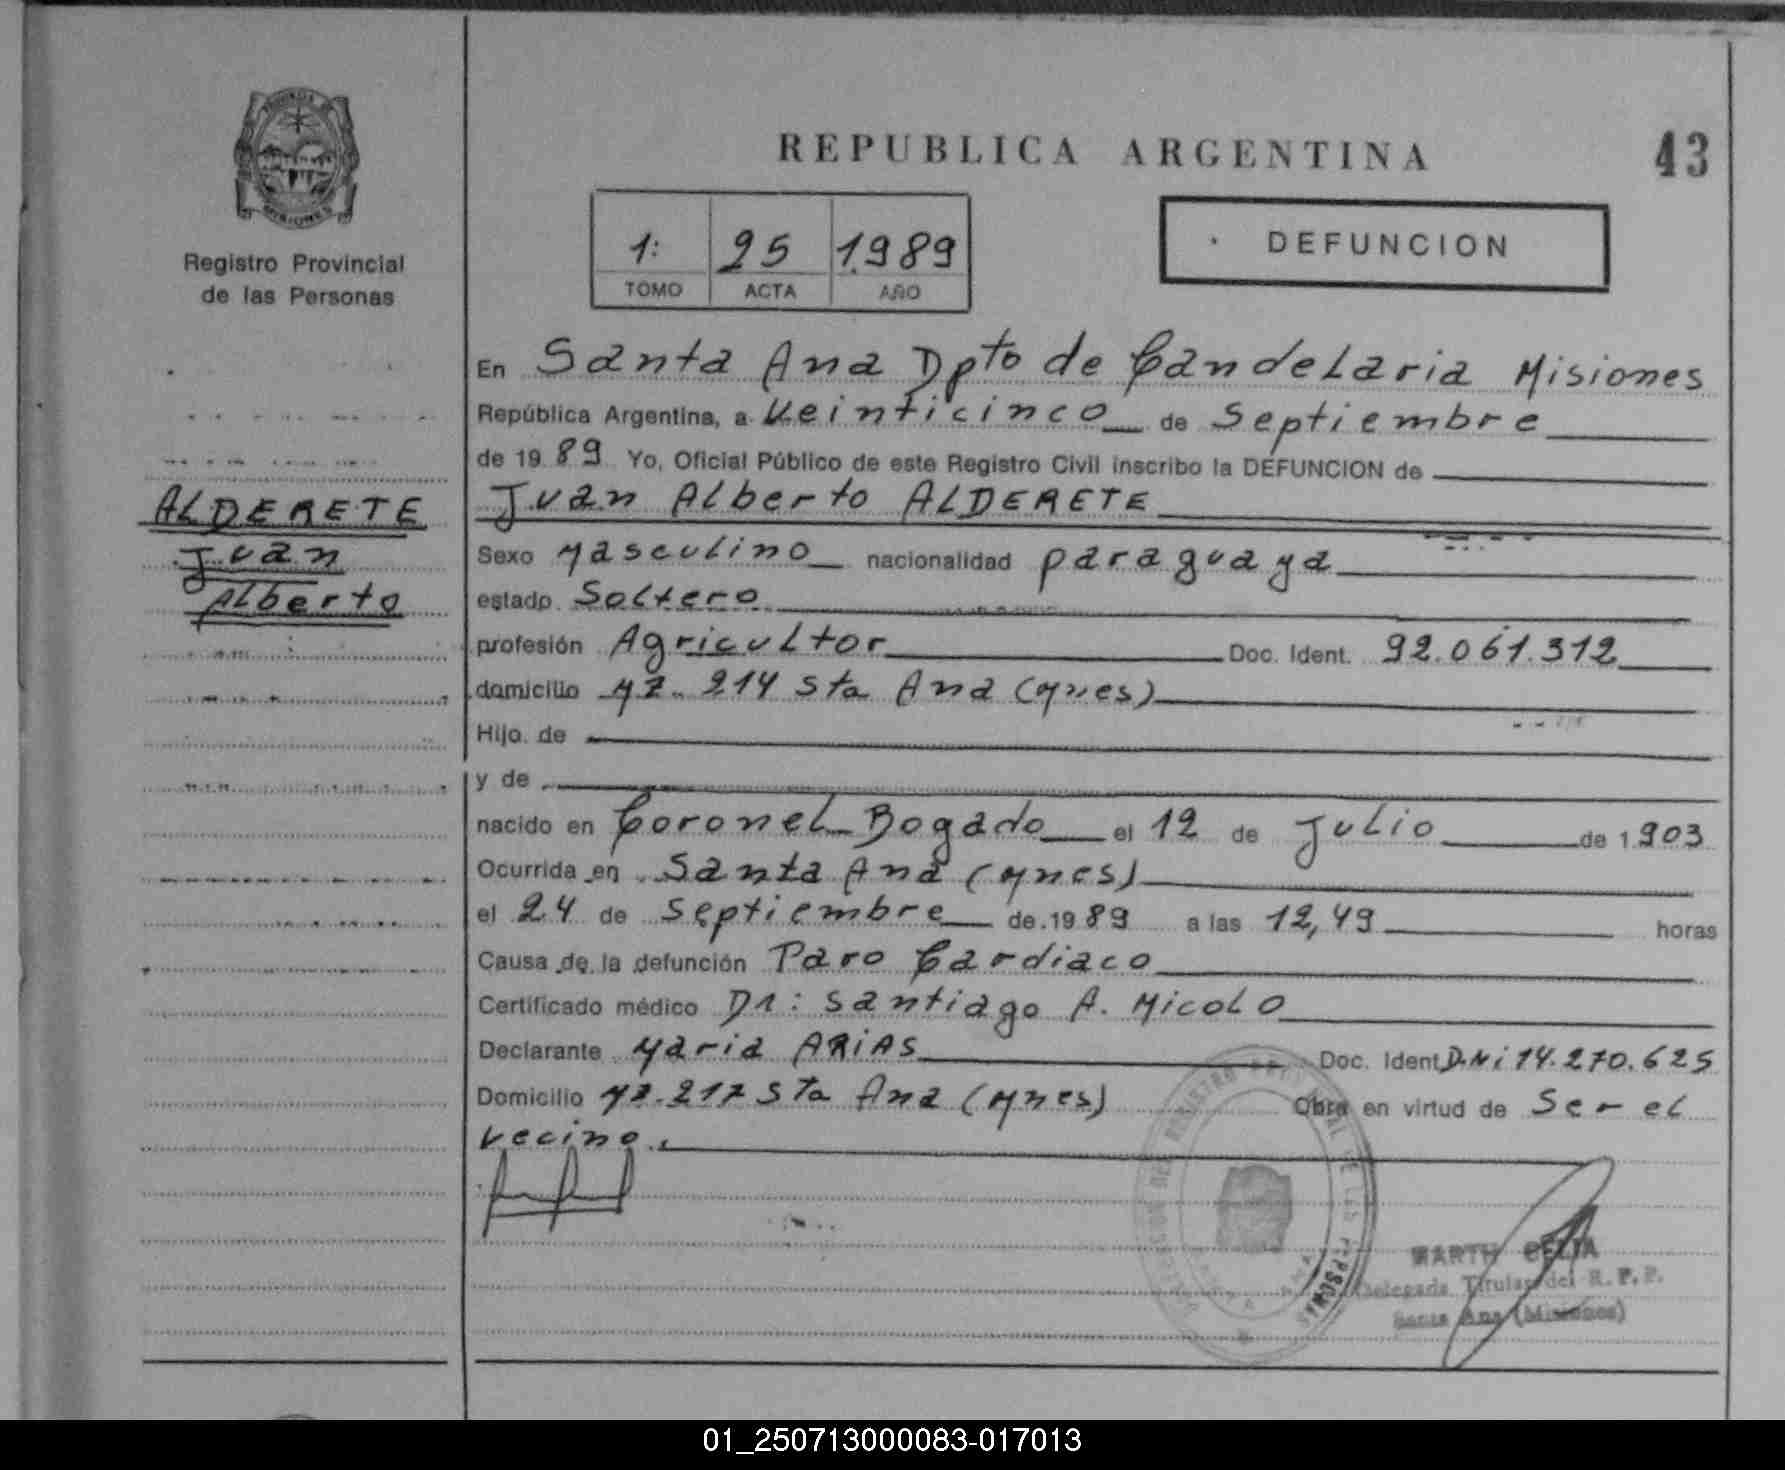 PROVINCIA DE
MISIONES
Registro Provincial
de las Personas
ALDERETE
Juan
Alberto
REPUBLICA ARGENTINA
43
1: 25 1.989
TOMO ACTA AÑO
DEFUNCION
En Santa Ana Dpto de Candelaria Misiones
República Argentina, a Veinticinco de Septiembre
de 19 89 Yo, Oficial Público de este Registro Civil inscribo la DEFUNCION de
Juan Alberto ALDERETE
Sexo Masculino nacionalidad paraguaya
estado Soltero
profesión Agricultor Doc. Ident. 92.061.312
domicilio Mz. 214 Sta Ana (Mnes)
Hijo de
y de
nacido en Coronel Bogado el 12 de Julio de 1.903
Ocurrida en Santa Ana (Mnes)
el 24 de Septiembre de 19 89 a las 12,49 horas
Causa de la defunción Paro Cardiaco
Certificado médico Dr: Santiago A. Micolo
Declarante Maria ARIAS Doc. Ident D.Ni 14.270.625
Domicilio Mz. 217 Sta Ana (Mnes) Obra en virtud de Ser el
vecino.
CELIA
Delegada Titular del R. P. P.
Santa Ana (Misiones)
01_250713000083-017013